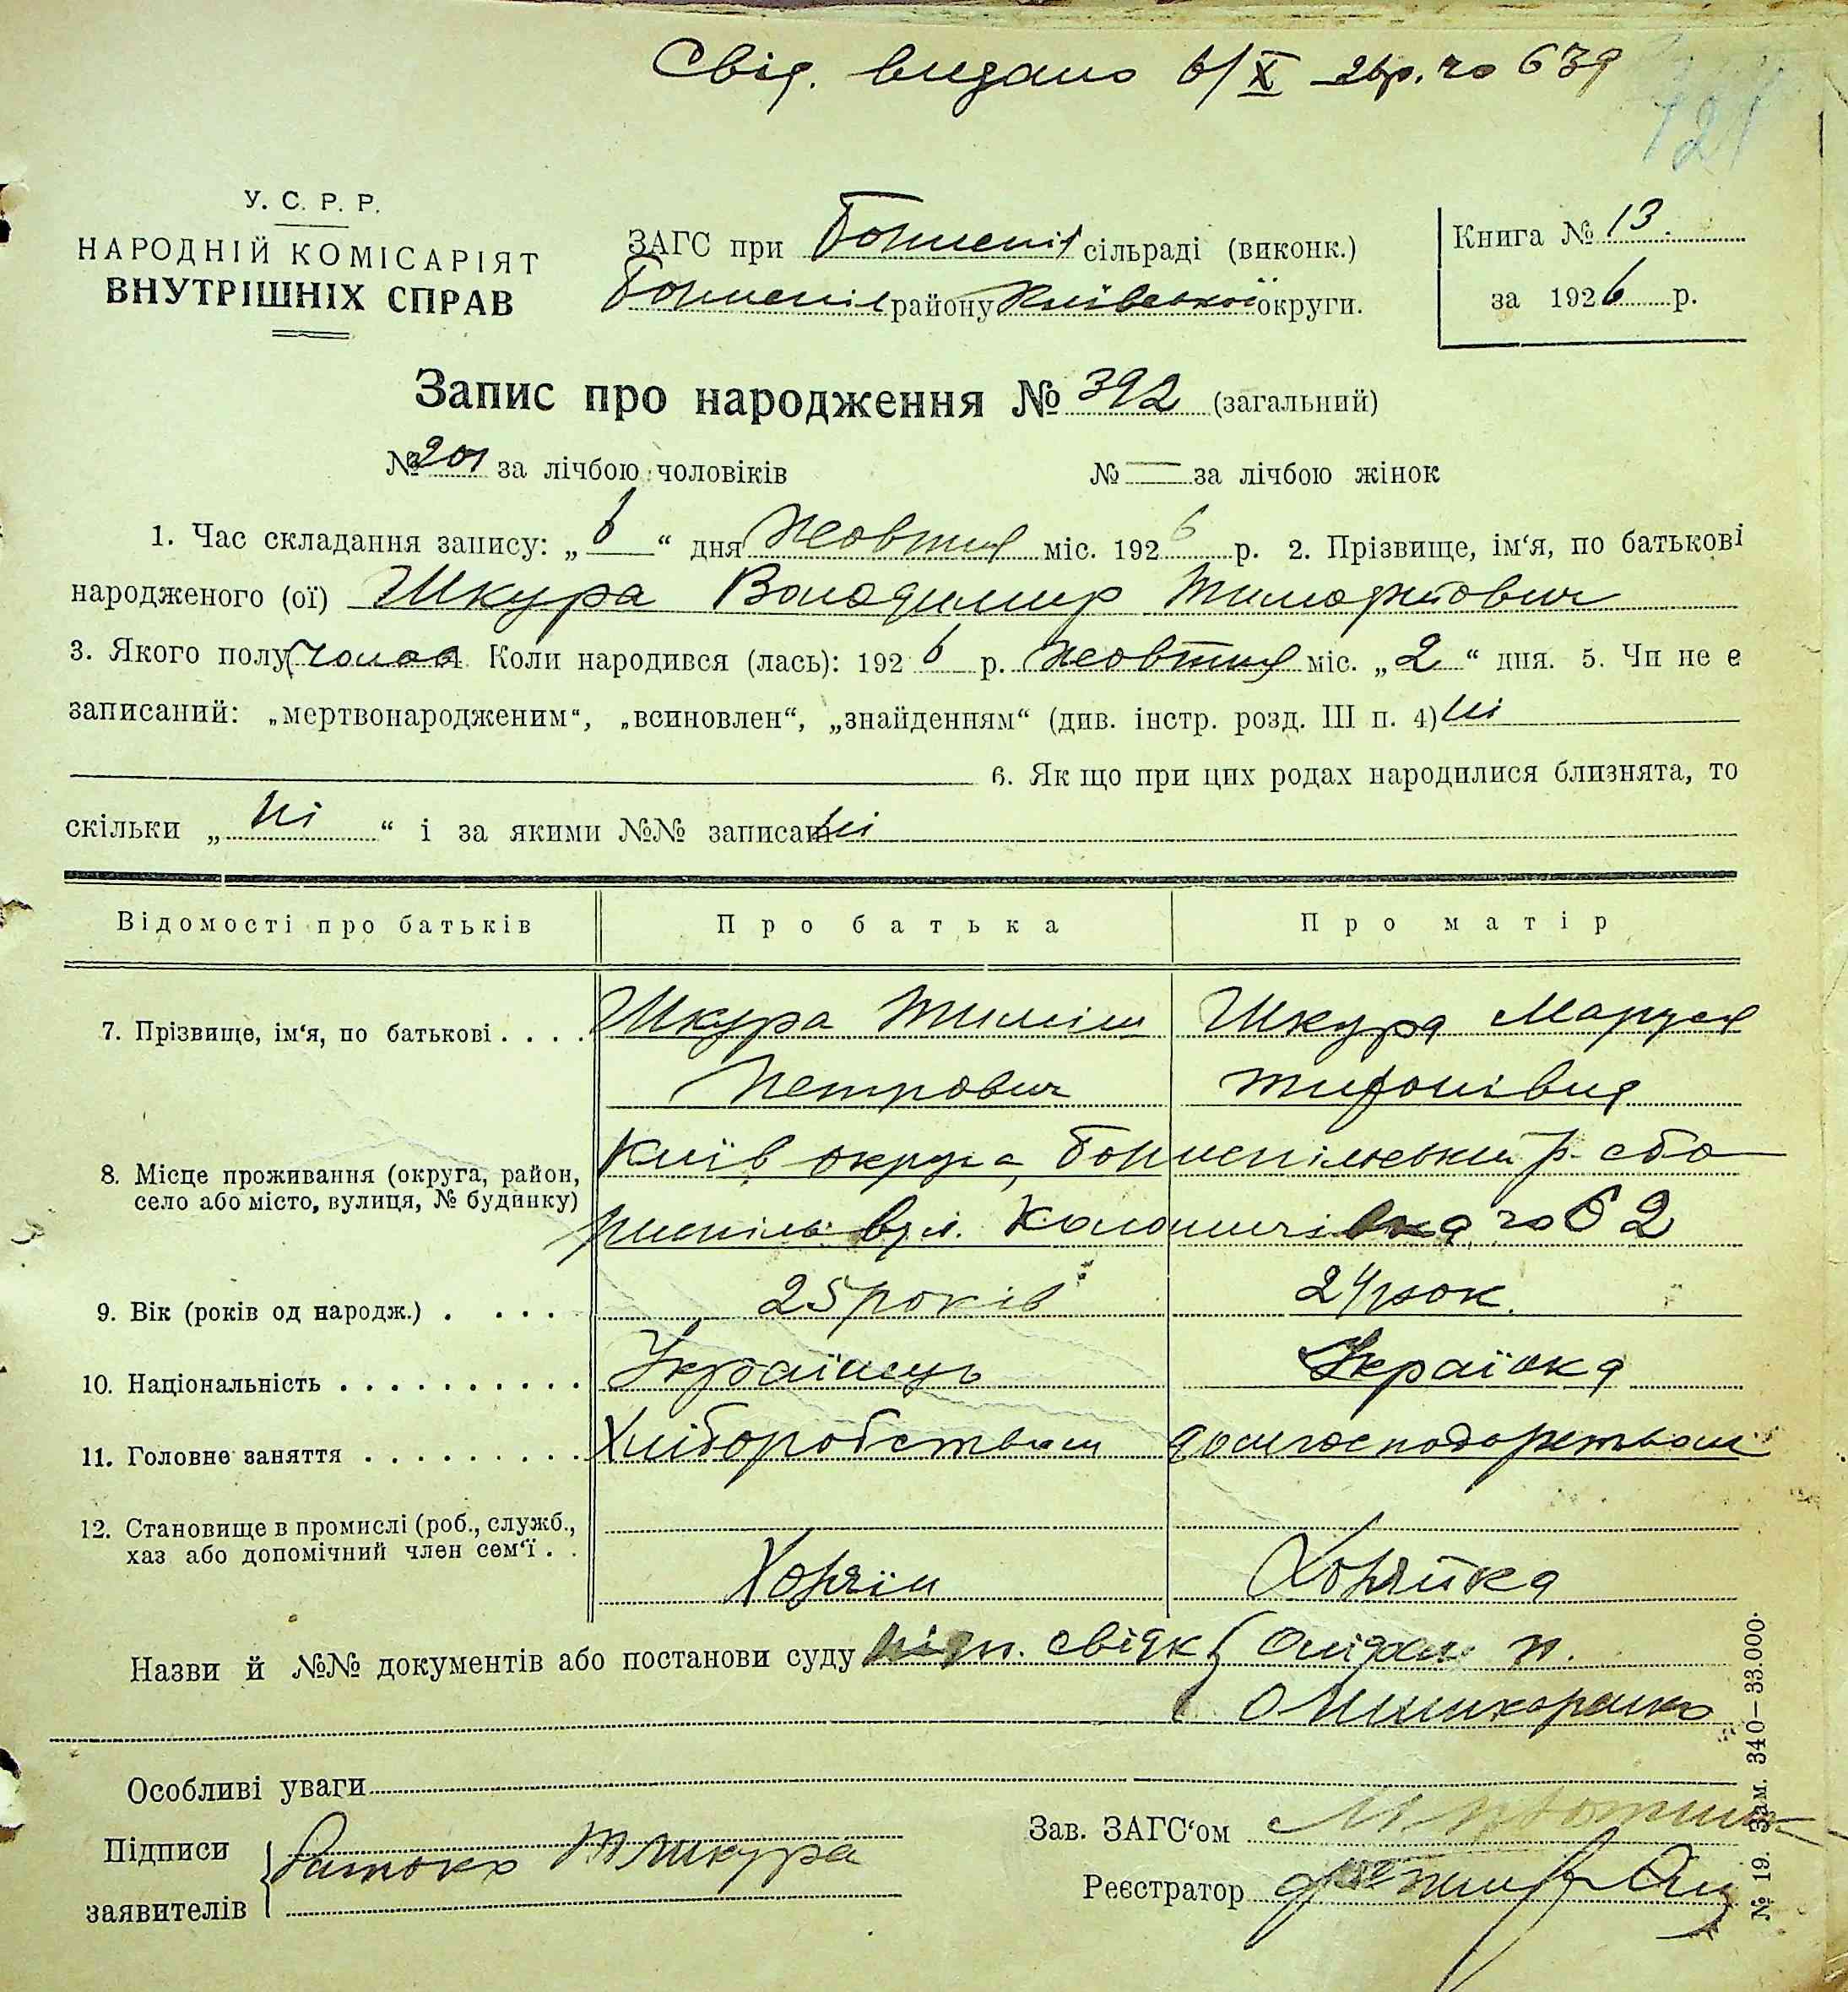 Свід. видано 6/X 26р. № 639
121
У. С. Р. Р.
НАРОДНІЙ КОМІСАРІЯТ
ВНУТРІШНІХ СПРАВ
ЗАГС при Бориспіл сільраді (виконк.)
Бориспіл району Київської округи.
Книга № 13.
за 1926 р.
Запис про народження № 392 (загальний)
№ 201 за лічбою чоловіків № — за лічбою жінок
1. Час складання запису: „6“ дня Жовтня міс. 1926 р. 2. Прізвище, ім‘я, по батькові
народженого (ої) Шкура Володимир Тимофійович
3. Якого полу чолов. Коли народився (лась): 1926 р. Жовтня міс. „2“ дня. 5. Чи не є
записаний: „мертвонародженим“, „всиновлен“, „знайденням“ (див. інстр. розд. III п. 4) ні
6. Як що при цих родах народилися близнята, то
скільки „ні“ і за якими №№ записані ні
Відомості про батьків Про батька Про матір
7. Прізвище, ім‘я, по батькові . . . . Шкура Тиміш Шкура Маруся
Петрович
8. Місце проживання (округа, район, Київ округа, Бориспільський р. с. Бо
село або місто, вулиця, № будинку) риспіль вул. № 62
9. Вік (років од народж.) . . . . 25 років 24 рок.
10. Національність . . . . . . . . . . Українець Українка
11. Головне заняття . . . . . . . . . Хліборобством домгосподарством
12. Становище в промислі (роб., служб.,
хаз або допомічний член сем‘ї . . Хозяїн Хозяйка
Назви й №№ документів або постанови суду свідк
Особливі уваги
Підписи Батько Т Шкура
заявителів
Зав. ЗАГС‘ом
Реєстратор
№ 19. Зам. 340—33.000.